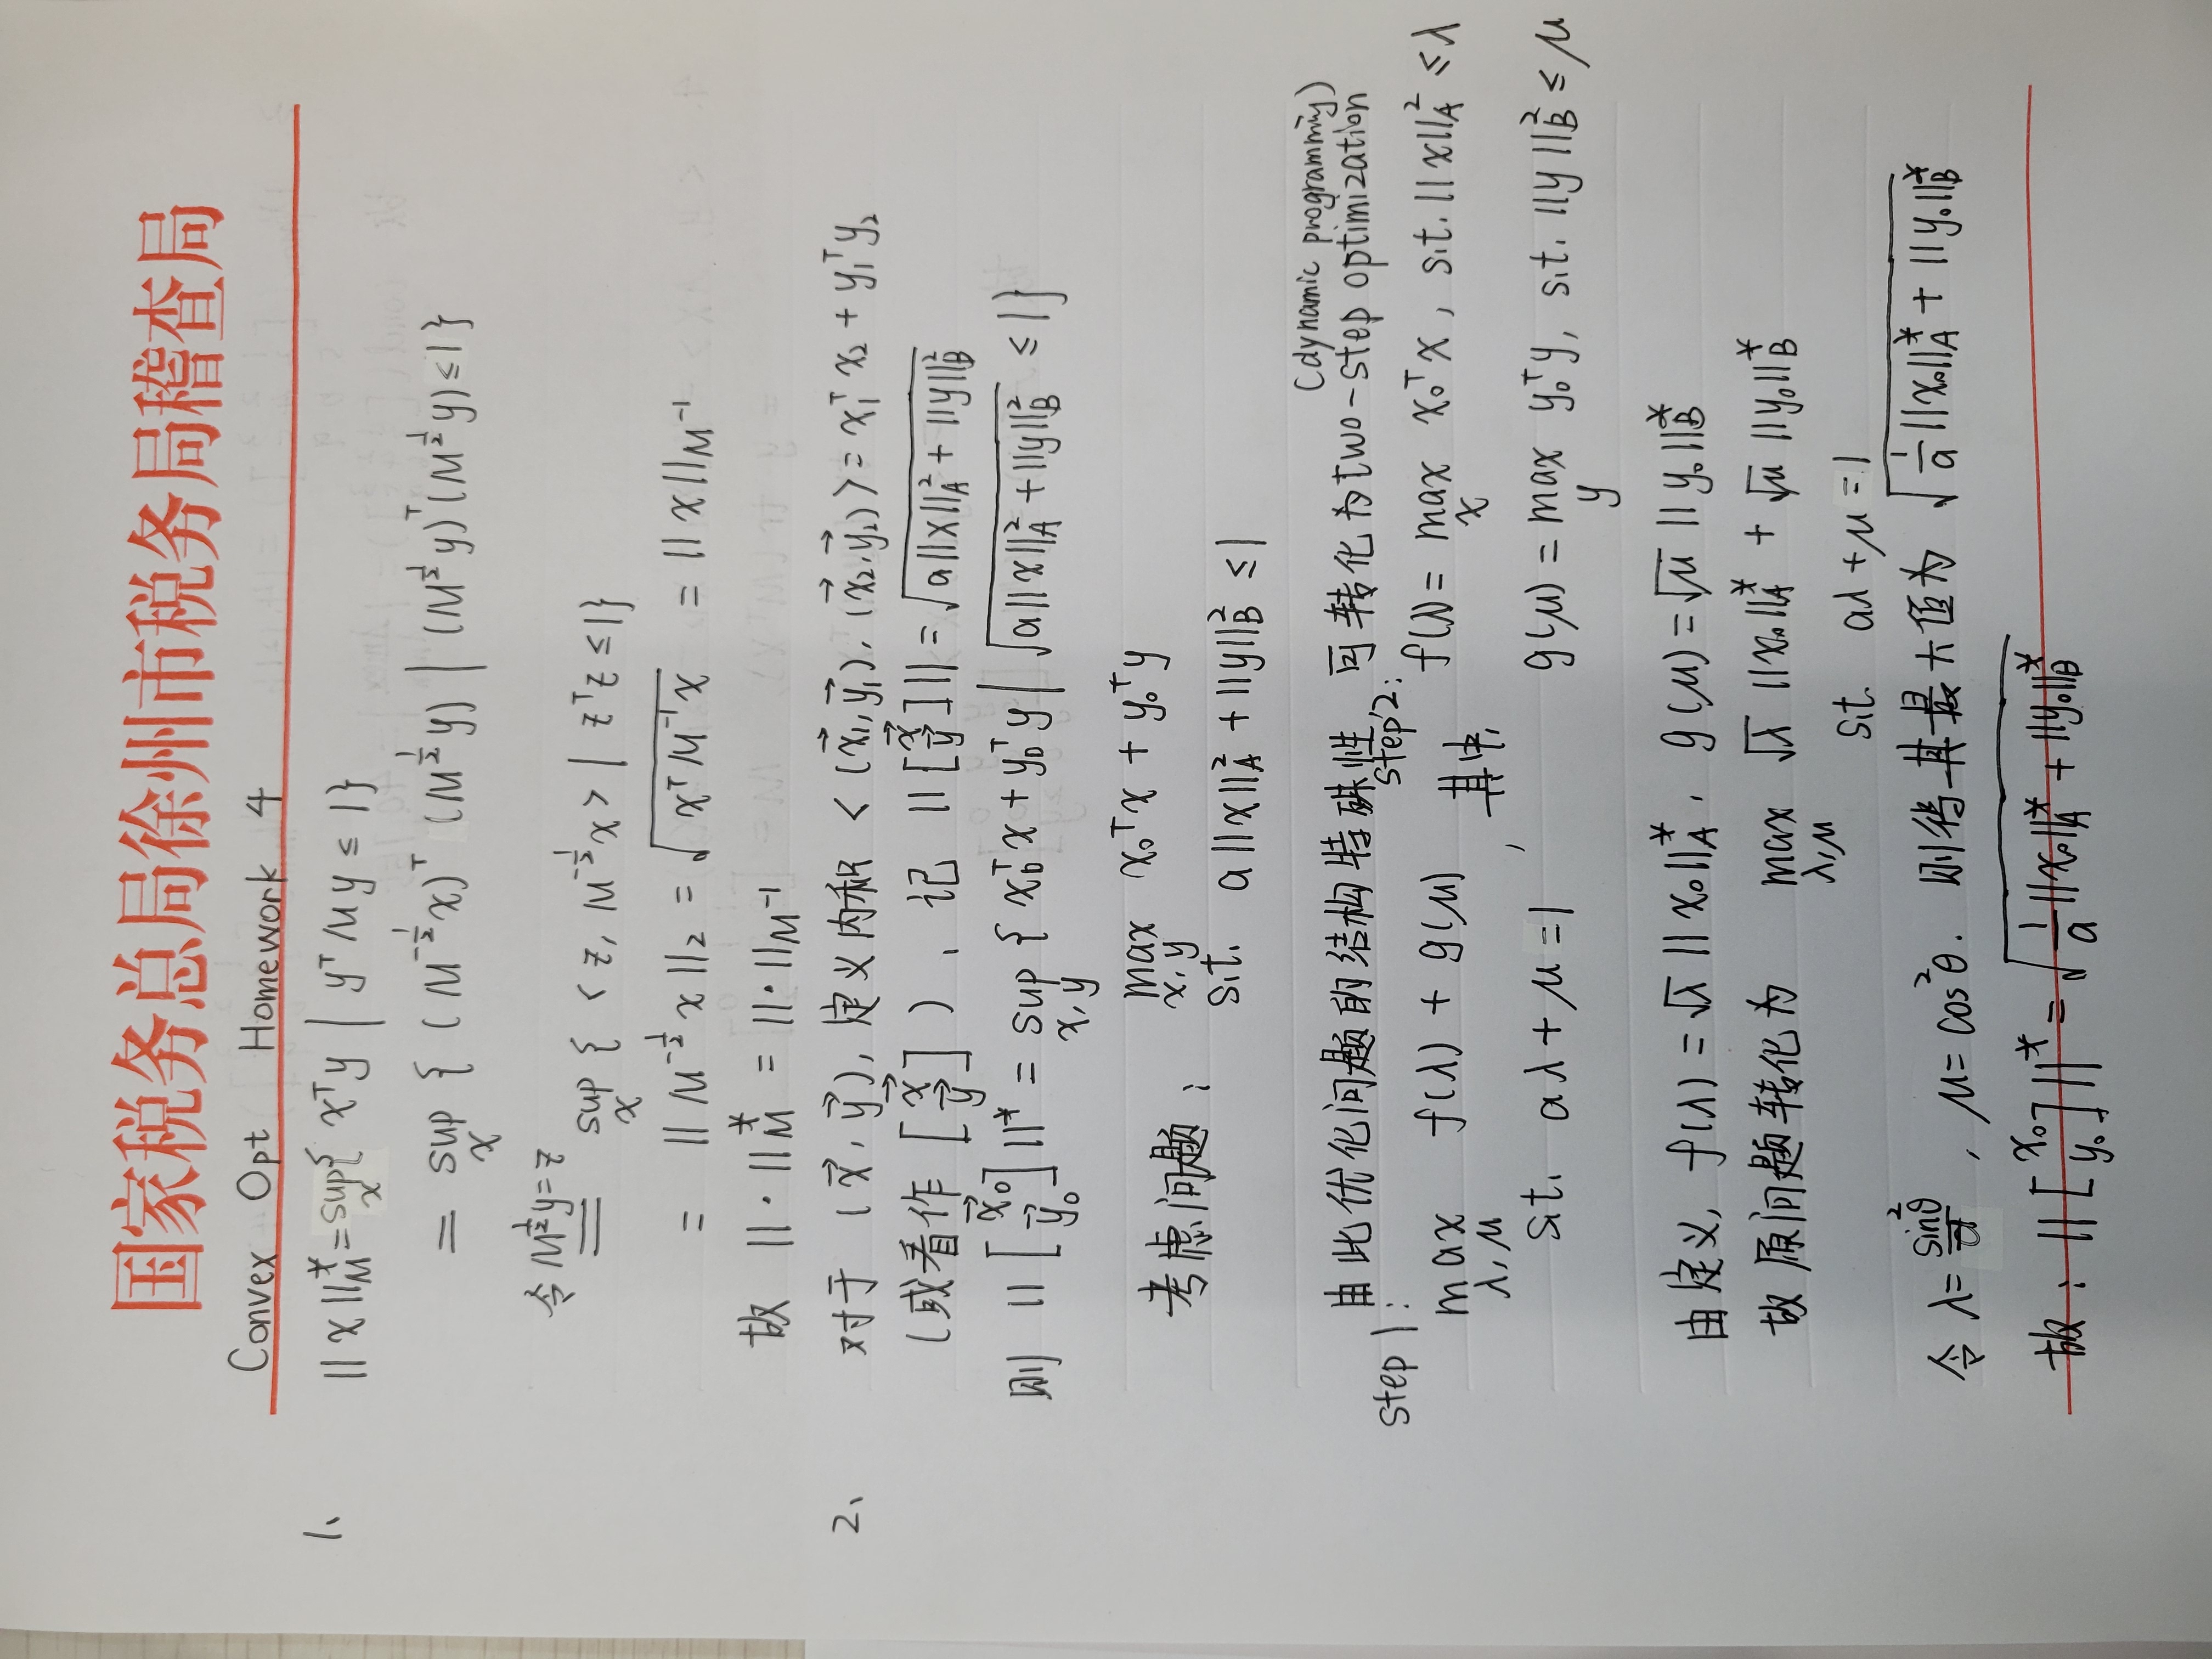 国家税务总局徐州市税务局稽查局
Convex Opt Homework 4
1、 ||x||_M^* = sup_x { x^T y | y^T M y ≤ 1}
= sup_x { (M^{-1/2} x)^T (M^{1/2} y) | (M^{1/2} y)^T (M^{1/2} y) ≤ 1}
令 M^{1/2} y = z
= sup_x { < z, M^{-1/2} x > | z^T z ≤ 1}
= || M^{-1/2} x ||_2 = √(x^T M^{-1} x) = ||x||_{M^{-1}}
故 ||·||_M^* = ||·||_{M^{-1}}
2、 对于 (x⃗, y⃗), 定义内积 < (x⃗_1, y⃗_1), (x⃗_2, y⃗_2) > = x_1^T x_2 + y_1^T y_2
(或看作 [x⃗ y⃗]), 记 ||[x⃗ y⃗]|| = √(a||x||_A^2 + ||y||_B^2)
则 ||[x⃗_0 y⃗_0]||^* = sup_{x,y} { x_0^T x + y_0^T y | √(a||x||_A^2 + ||y||_B^2) ≤ 1}
考虑问题: max_{x,y} x_0^T x + y_0^T y
s.t. a||x||_A^2 + ||y||_B^2 ≤ 1
(dynamic programming)
由此优化问题的结构特殊性, 可转化为 two-step optimization
step 1: max_{λ,μ} f(λ) + g(μ)
s.t. aλ + μ = 1
, 其中,
step 2: f(λ) = max_x x_0^T x, s.t. ||x||_A^2 ≤ λ
g(μ) = max_y y_0^T y, s.t. ||y||_B^2 ≤ μ
由定义, f(λ) = √λ ||x_0||_A^*, g(μ) = √μ ||y_0||_B^*
故原问题转化为 max_{λ,μ} √λ ||x_0||_A^* + √μ ||y_0||_B^*
s.t. aλ + μ = 1
令 λ = sin^2θ/a, μ = cos^2θ. 则得其最大值为 √(1/a ||x_0||_A^* + ||y_0||_B^*)
故: ||[x_0 y_0]||^* = √(1/a ||x_0||_A^* + ||y_0||_B^*)